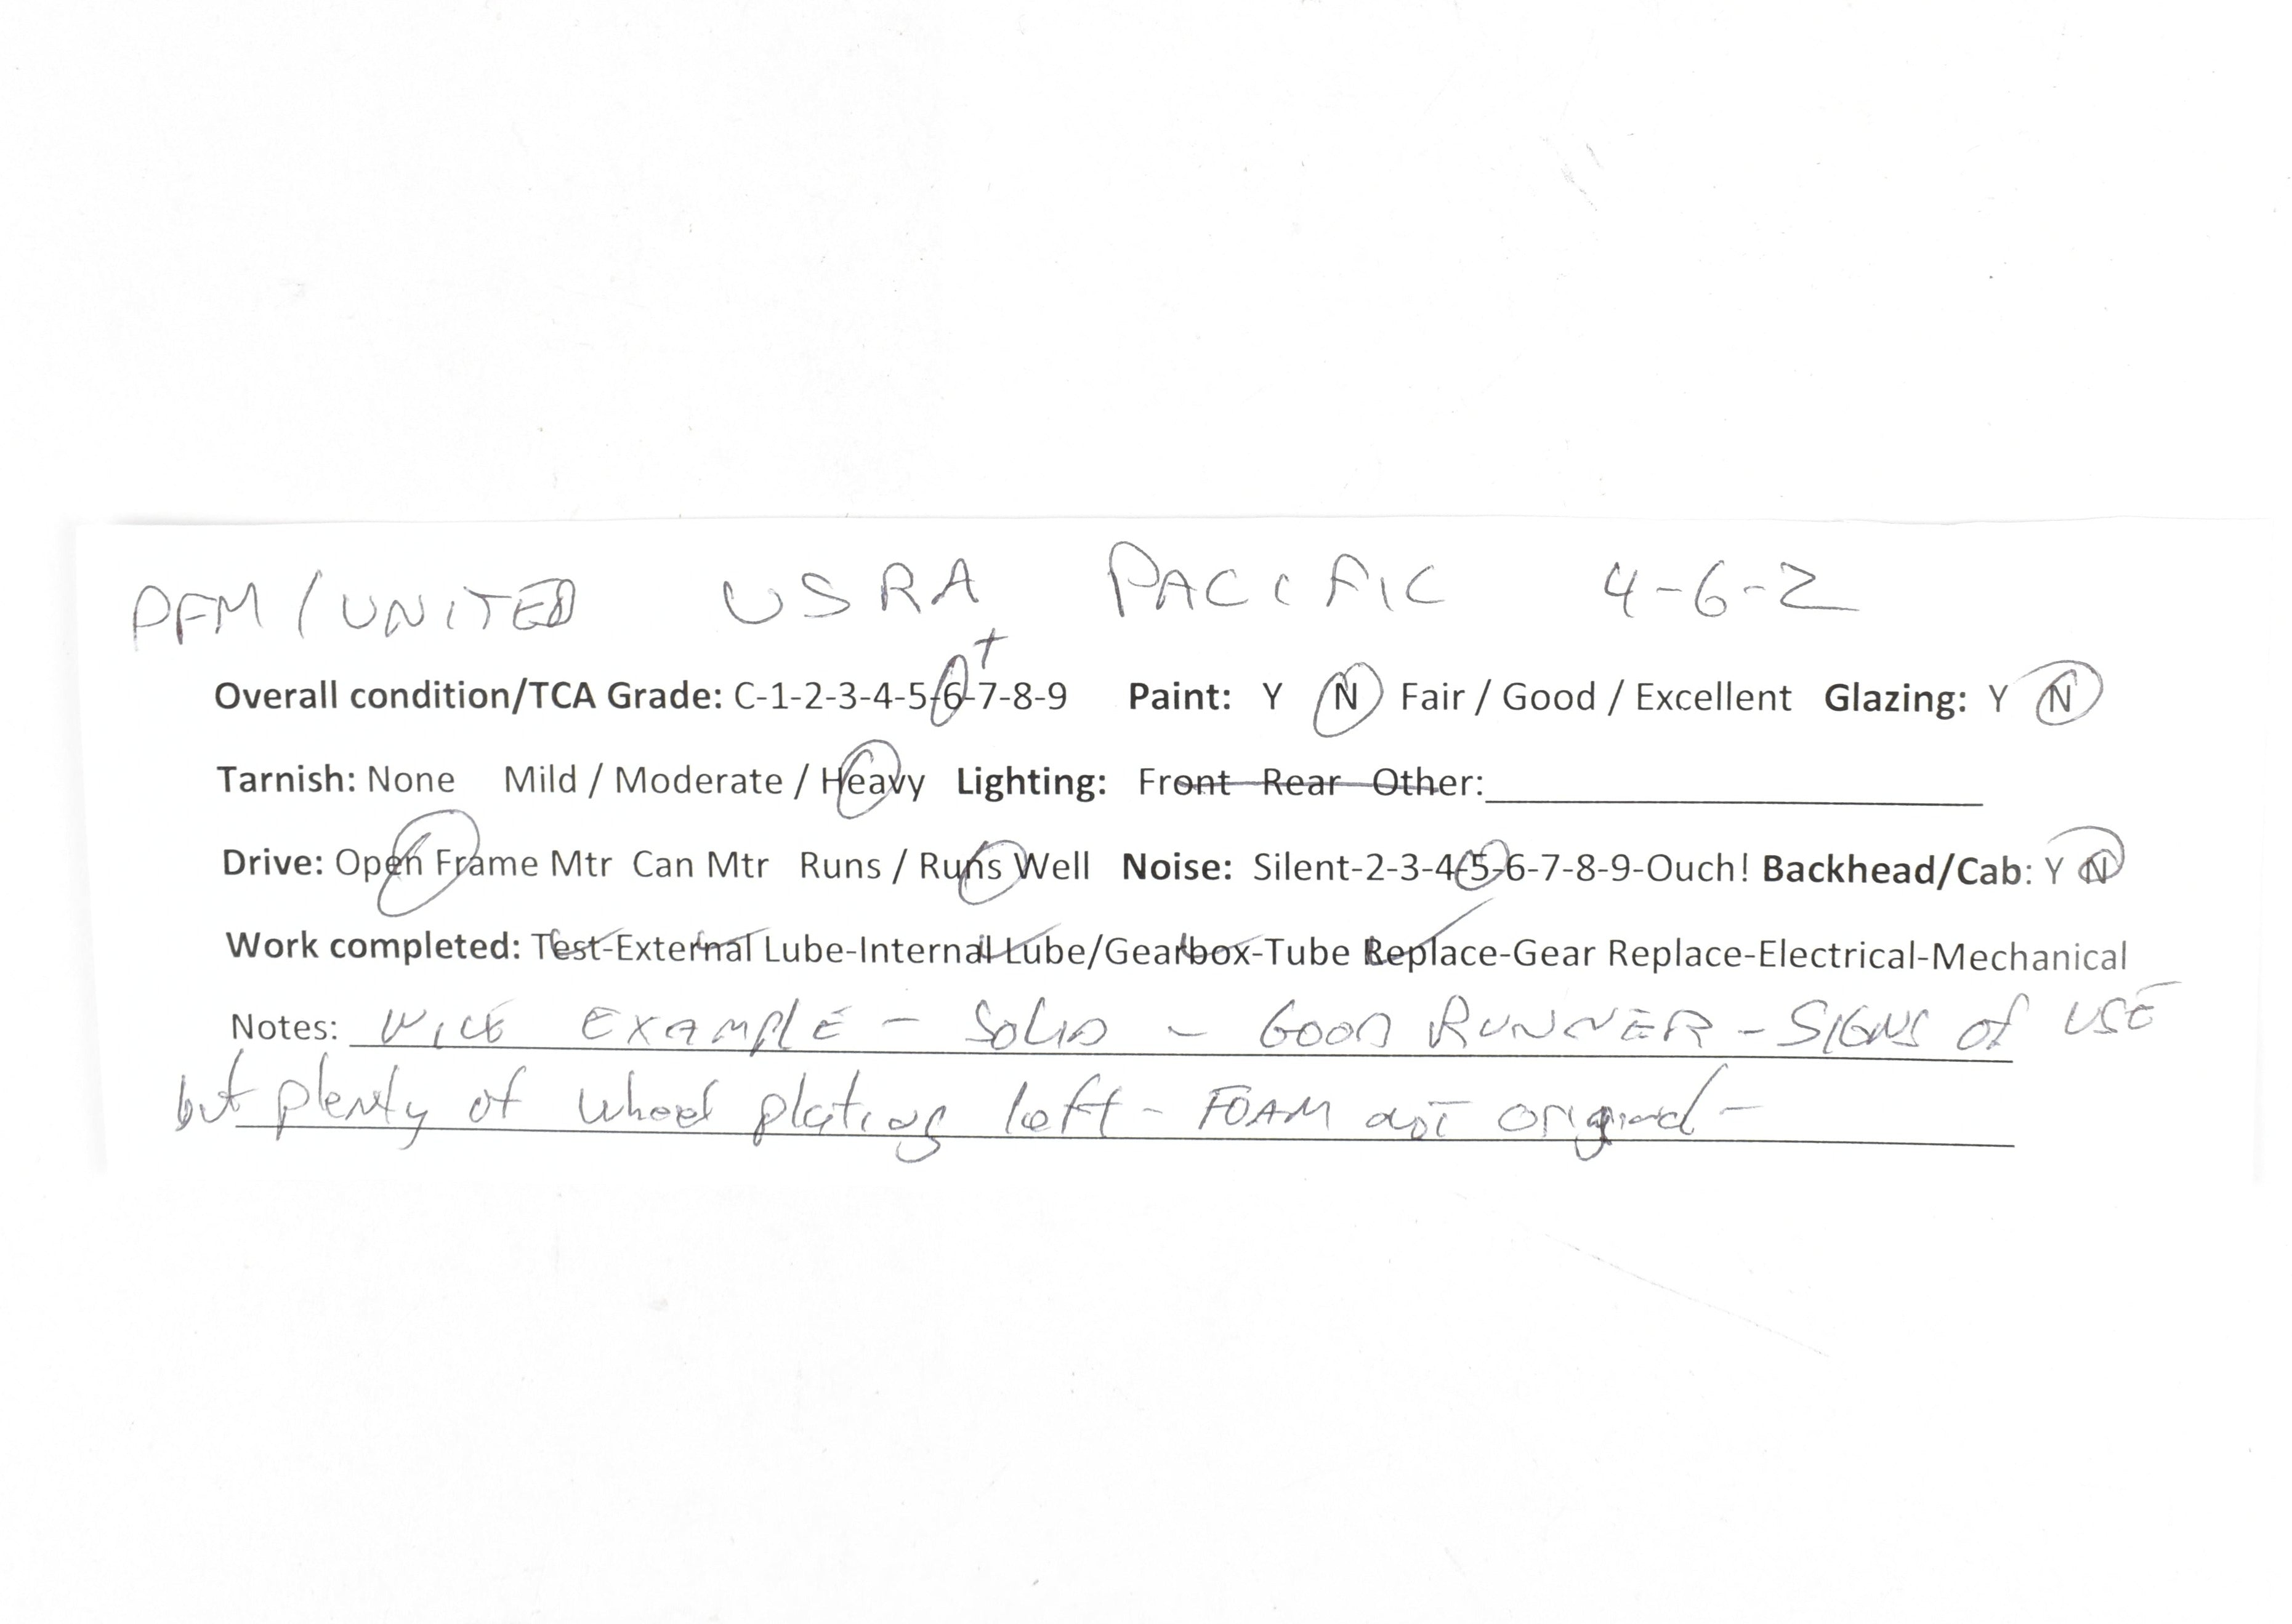 PFM/UNITED USRA PACIFIC 4-6-2
Overall condition/TCA Grade: C-1-2-3-4-5-6-7-8-9 + Paint: Y N Fair / Good / Excellent Glazing: Y N
Tarnish: None Mild / Moderate / Heavy Lighting: Front Rear Other:
Drive: Open Frame Mtr Can Mtr Runs / Runs Well Noise: Silent-2-3-4-5-6-7-8-9-Ouch! Backhead/Cab: Y N
Work completed: Test-External Lube-Internal Lube/Gearbox-Tube Replace-Gear Replace-Electrical-Mechanical
Notes: NICE EXAMPLE - SOLID - GOOD RUNNER - SIGNS of USE
but plenty of wheel plating left - FOAM not original -